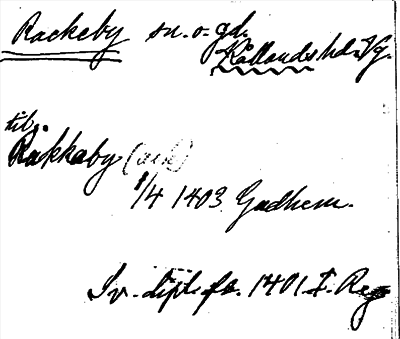 Rackeby sn. o. gd.
Kållands hd. Vg.
till
Rakkaby (ack)
1/4 1403 Gudhem.
Sv. dipl. fr. 1401 I. Reg